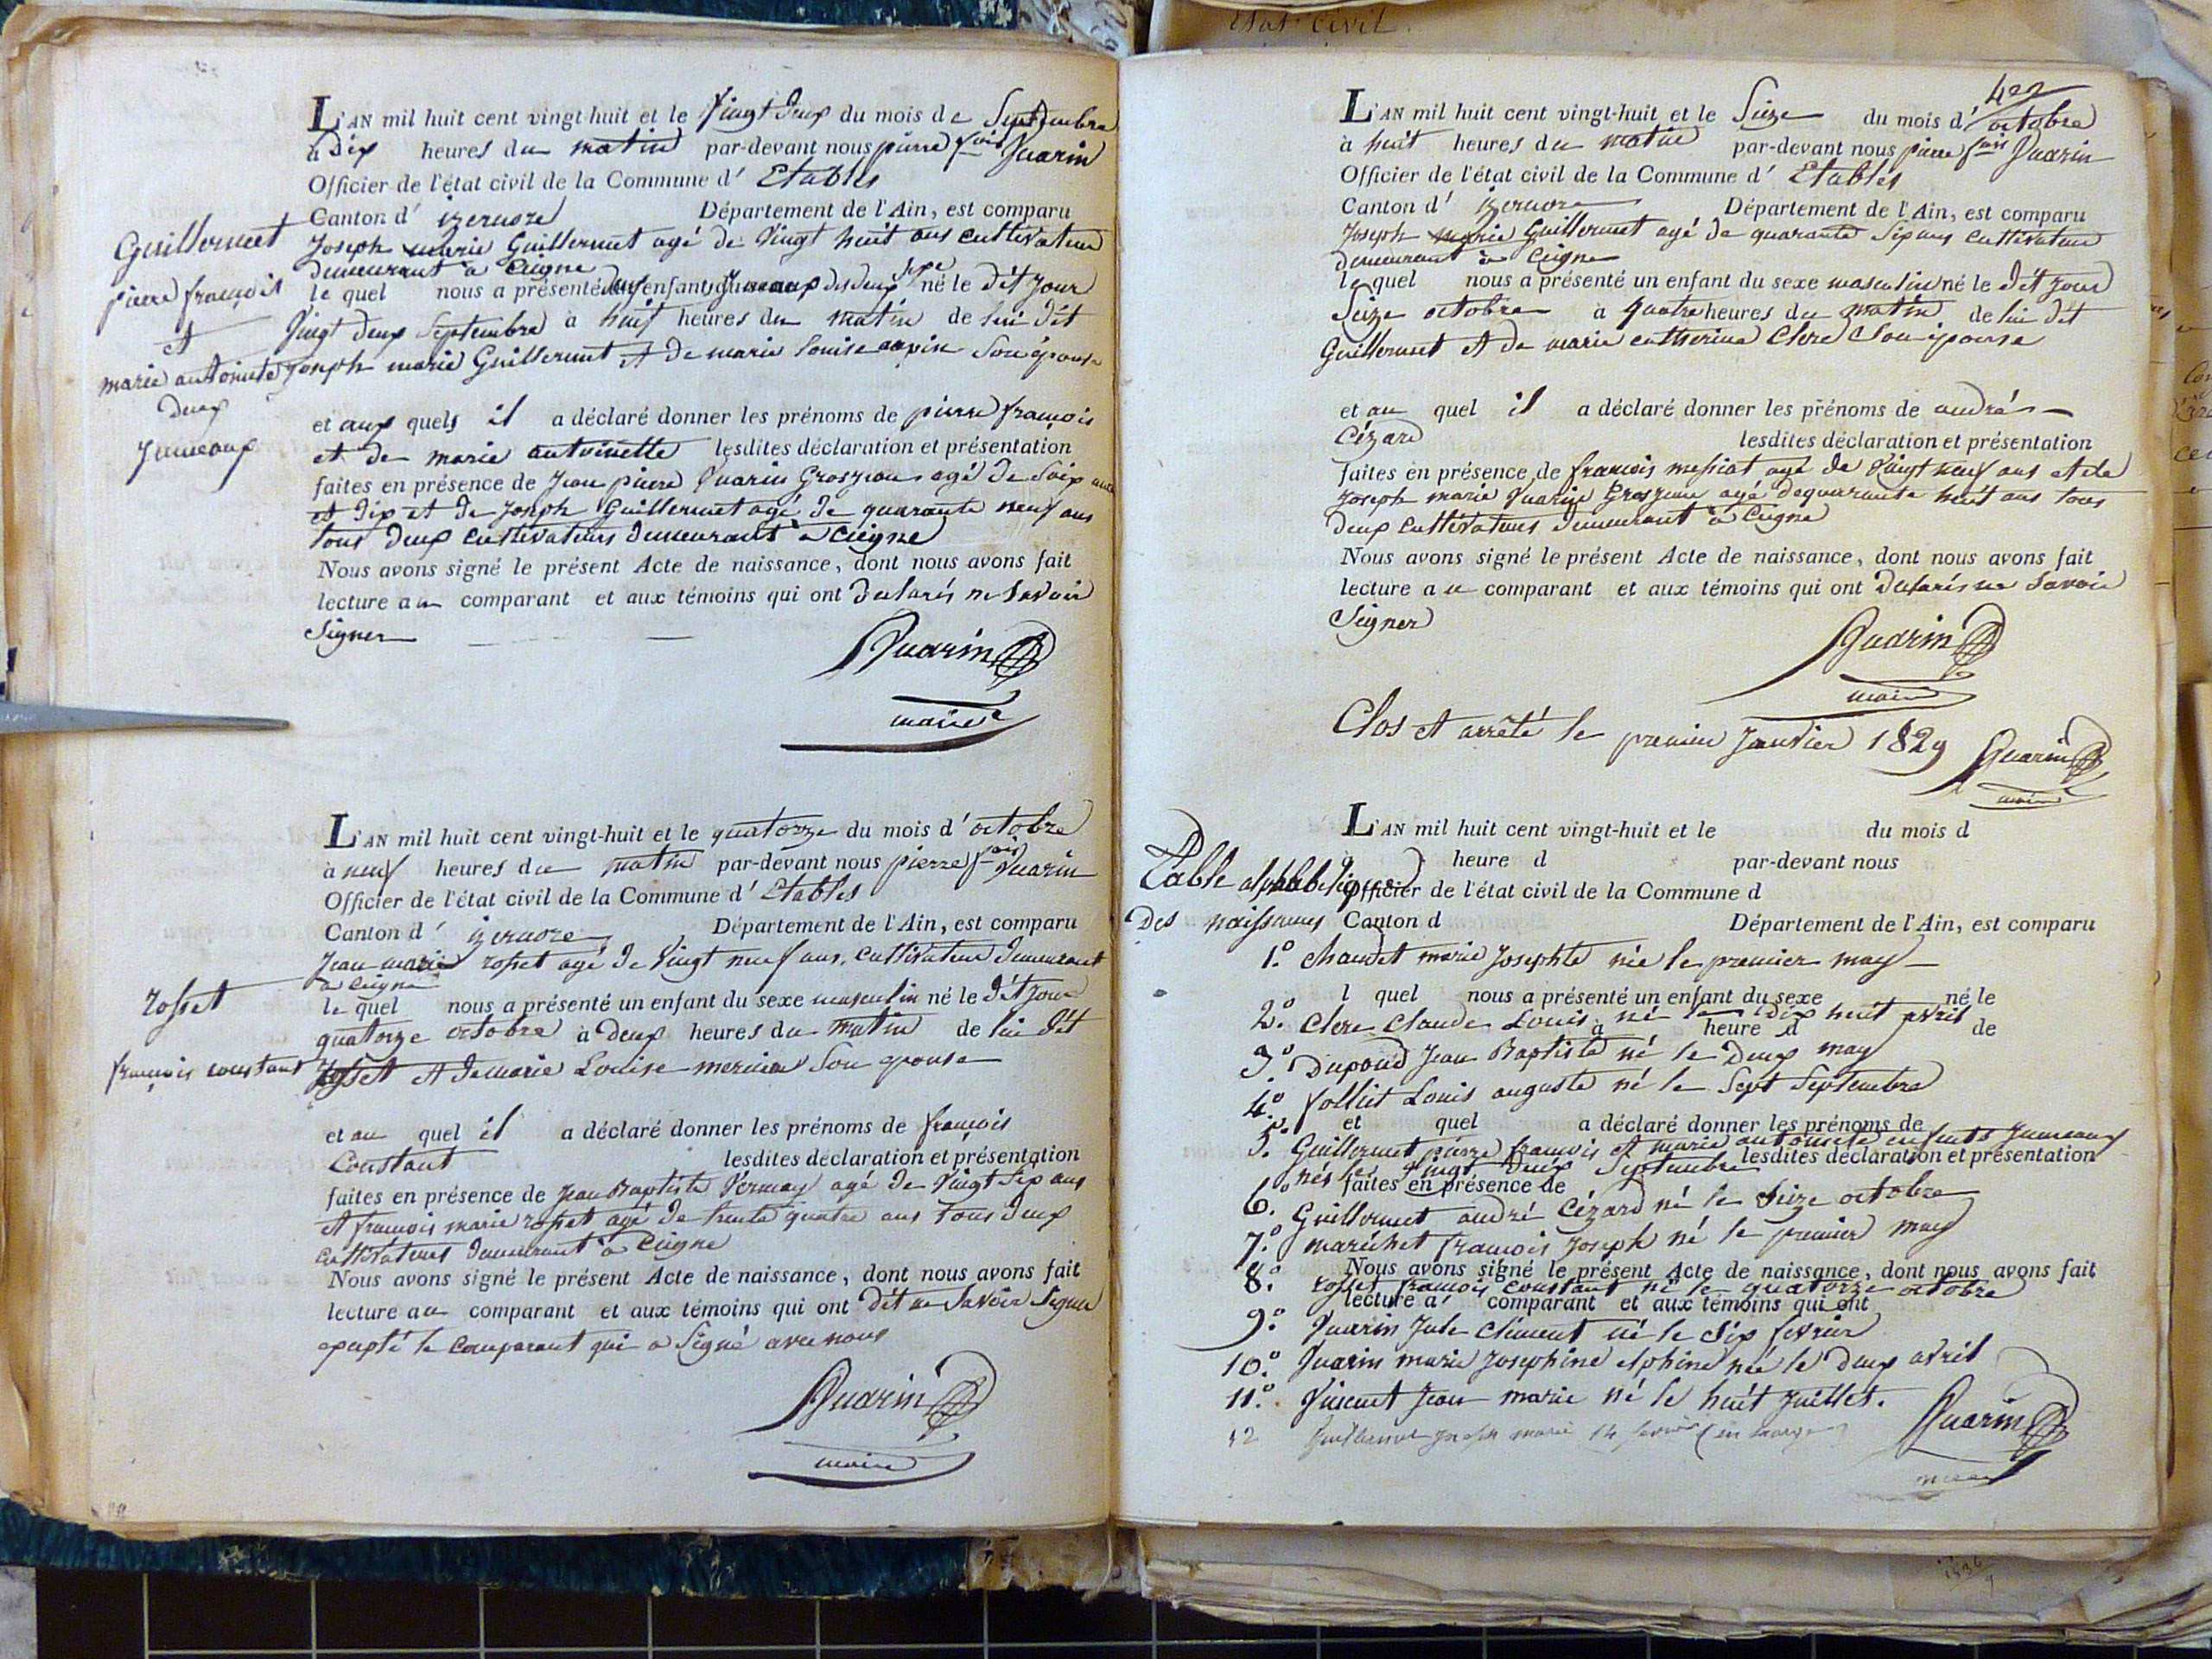 Etat Civil.
L'AN mil huit cent vingt-huit et le Vingt deux du mois de Septembre
à Dix heures du matin par-devant nous pierre fois Juarin
Officier de l'état civil de la Commune d' Etables
Canton d' izernore Département de l'Ain, est comparu
Joseph marie Guillermet agé de Vingt huit ans Cultivateur
demeurant à Ceigne
le quel nous a présenté deux enfants Jumeaux des deux sexe né le dit Jour
Vingt deux Septembre à huit heures du matin de lui dit
Joseph marie Guillermet et de marie louise son épouse
et aux quels il a déclaré donner les prénoms de pierre françois
et de marie antoinette lesdites déclaration et présentation
faites en présence de Jean pierre Juarin Grosjean agé de Soixante
et dix et de Joseph Guillermet agé de quarante neuf ans
tous deux Cultivateurs demeurant à Ceigne
Nous avons signé le présent Acte de naissance, dont nous avons fait
lecture au comparant et aux témoins qui ont déclarés ne Savoir
Signer
Juarin
maire
Guillermet
pierre françois
et
marie antoinete
deux
Jumeaux
L'AN mil huit cent vingt-huit et le quatorze du mois d' octobre
à neuf heures du matin par-devant nous pierre fois Juarin
Officier de l'état civil de la Commune d' Etables
Canton d' izernore Département de l'Ain, est comparu
Jean marie rosset agé de Vingt neuf ans, Cultivateur demeurant
à Ceigne
le quel nous a présenté un enfant du sexe masculin né le dit Jour
quatorze octobre à deux heures du matin de lui dit
rosset et de marie Louise mercier Son epouse
et au quel il a déclaré donner les prénoms de françois
Constant lesdites déclaration et présentation
faites en présence de Jean Baptiste Vernay agé de Vingt Six ans
et françois marie rosset agé de trente quatre ans tous deux
Cultivateurs demeurant à Ceigne
Nous avons signé le présent Acte de naissance, dont nous avons fait
lecture au comparant et aux témoins qui ont dit ne Savoir Signer
expepté le Comparant qui a Signé avec nous
Juarin
maire
rosset
françois constant
402
L'AN mil huit cent vingt-huit et le Seize du mois d' octobre
à huit heures du matin par-devant nous pierre fois Juarin
Officier de l'état civil de la Commune d' Etables
Canton d' izernore Département de l'Ain, est comparu
Joseph marie Guillermet agé de quarante Six ans Cultivateur
demeurant à Ceigne
le quel nous a présenté un enfant du sexe masculin né le dit Jour
Seize octobre à quatre heures du matin de lui dit
Guillermet et de marie catherine Clerc Son épouse
et au quel il a déclaré donner les prénoms de andrés
Cézard lesdites déclaration et présentation
faites en présence de françois messiat agé de Vingt neuf ans et de
Joseph marie Juarin Grosjean agé de quarante huit ans tous
deux Cultivateurs demeurant à Ceigne
Nous avons signé le présent Acte de naissance, dont nous avons fait
lecture au comparant et aux témoins qui ont déclarés ne Savoir
Signer
Juarin
maire
Clos et arrêté le premier Janvier 1829 Juarin
maire
L'AN mil huit cent vingt-huit et le du mois d
à heure d par-devant nous
Officier de l'état civil de la Commune d
Canton d Département de l'Ain, est comparu
Table alphabetique
Des naissances
1.° Chaudet marie Josephte née le premier may
l quel nous a présenté un enfant du sexe né le
2.° Clerc Claude Louis né le dix huit avril
à heure d de
3.° Dupond Jean Baptiste né le deux may
4.° follut Louis auguste né le Sept Septembre
et quel a déclaré donner les prénoms de
5.° Guillermet pierre françois et marie antoinete enfants Jumeaux
lesdites déclaration et présentation
nés le Vingt deux Septembre
faites en présence de
6.° Guillermet andré Cézard né le Seize octobre
7.° maréchet françois Joseph né le premier may
Nous avons signé le présent Acte de naissance, dont nous avons fait
8.° rosset françois Constant né le quatorze octobre
lecture a comparant et aux témoins qui ont
9.° Juarin Jule Clément né le Six fevrier
10.° Juarin marie Josephine elphine née le deux avril
11.° Vincent Jean marie né le huit Juillet.
12 Guillermet Joseph marie 14 fevrier (en marge
Juarin
maire